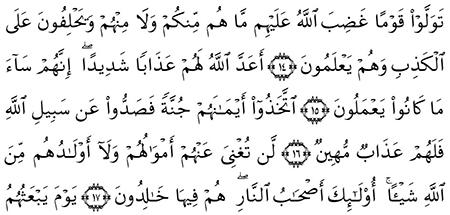 تَوَلَّوۡاْ قَوۡمًا غَضِبَ ٱللَّهُ عَلَيۡهِم مَّا هُم مِّنكُمۡ وَلَا مِنۡهُمۡ وَيَحۡلِفُونَ عَلَى
ٱلۡكَذِبِ وَهُمۡ يَعۡلَمُونَ ﴿١٤﴾ أَعَدَّ ٱللَّهُ لَهُمۡ عَذَابًا شَدِيدًاۖ إِنَّهُمۡ سَآءَ
مَا كَانُواْ يَعۡمَلُونَ ﴿١٥﴾ ٱتَّخَذُوٓاْ أَيۡمَٰنَهُمۡ جُنَّةً فَصَدُّواْ عَن سَبِيلِ ٱللَّهِ
فَلَهُمۡ عَذَابٌ مُّهِينٌ ﴿١٦﴾ لَّن تُغۡنِيَ عَنۡهُمۡ أَمۡوَٰلُهُمۡ وَلَآ أَوۡلَٰدُهُم مِّنَ
ٱللَّهِ شَيۡـًٔاۚ أُوْلَٰٓئِكَ أَصۡحَٰبُ ٱلنَّارِۖ هُمۡ فِيهَا خَٰلِدُونَ ﴿١٧﴾ يَوۡمَ يَبۡعَثُهُمُ